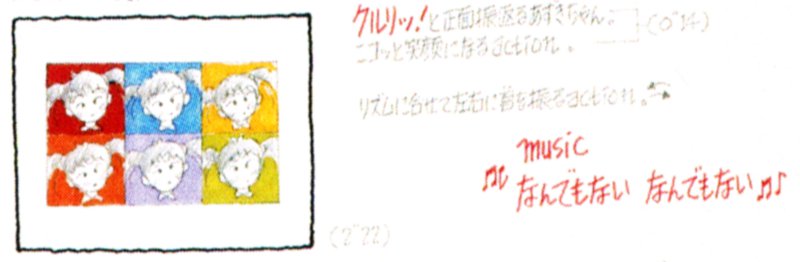 クルリッ!と正面に振返るあずきちゃん。 (0"14)
ニコッと笑顔になるaction。
リズムに合せて左右に首を振るaction。
music
♬ なんでもない なんでもない ♬♪
(2"22)